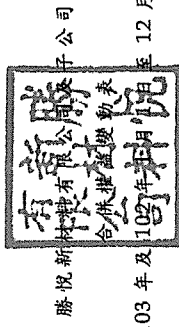 勝悅新材料有限公司及子公司
合併權益變動表
03 年及 102 年 1 月 1 日至 12 月